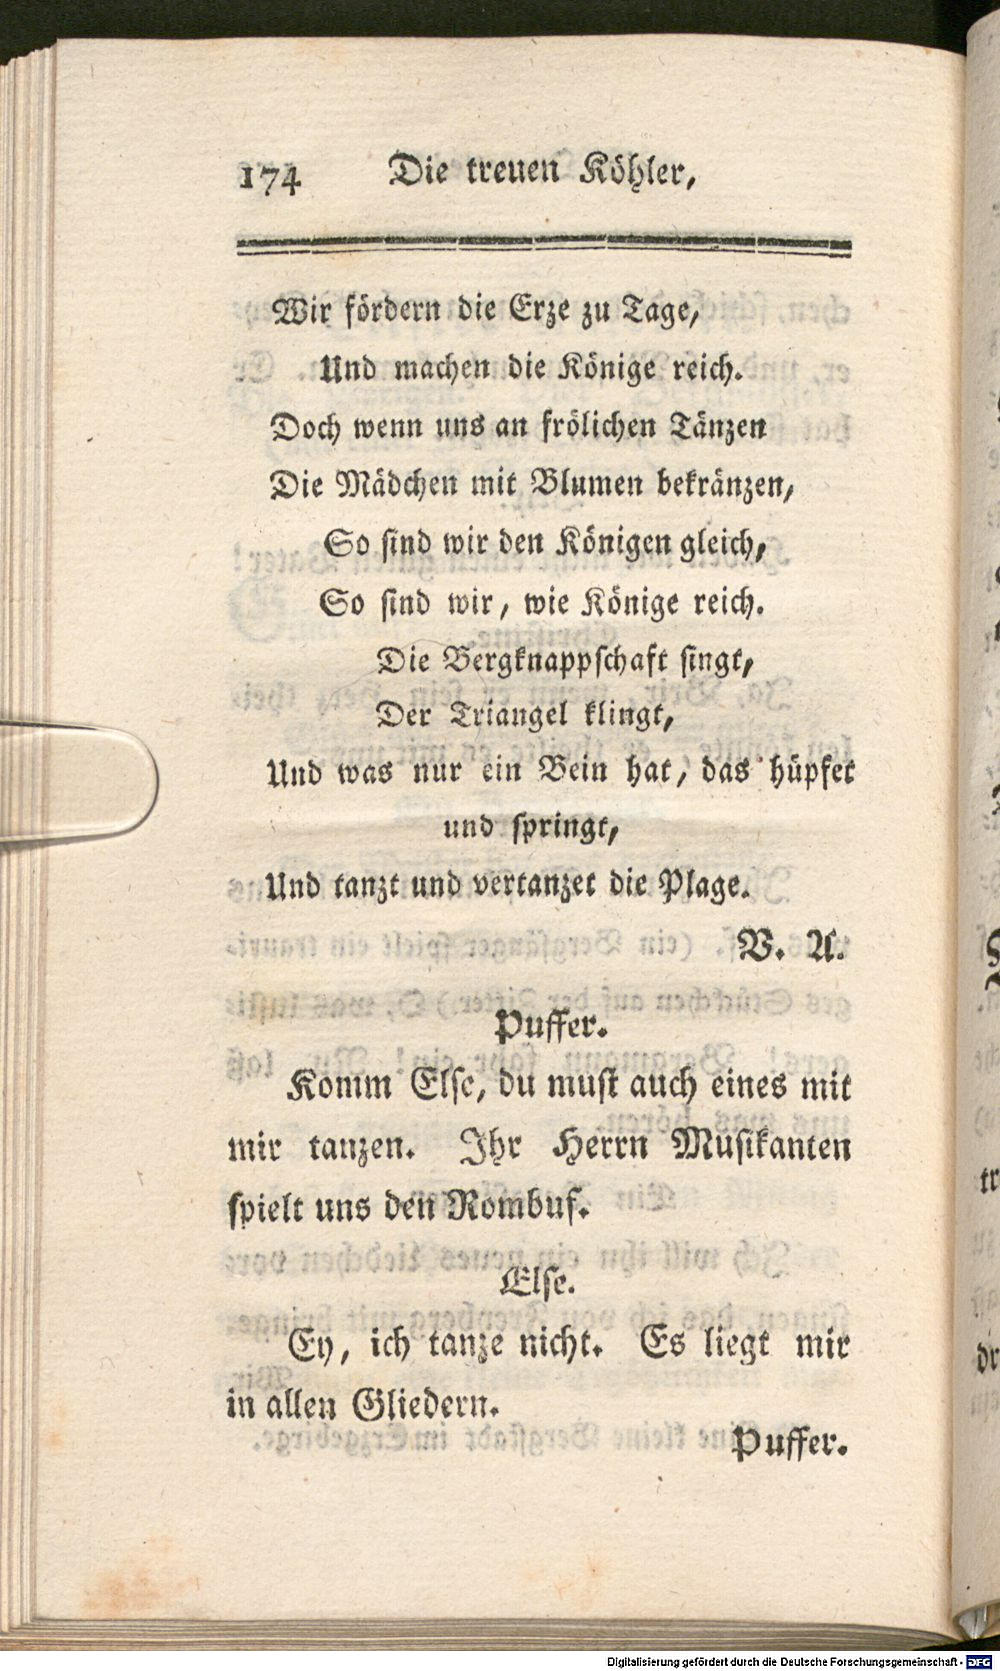 174 Die treuen Köhler,
Wir fördern die Erze zu Tage,
Und machen die Könige reich.
Doch wenn uns an frölichen Tänzen
Die Mädchen mit Blumen bekränzen,
So ſind wir den Königen gleich,
So ſind wir, wie Könige reich.
Die Bergknappſchaft ſingt,
Der Triangel klingt,
Und was nur ein Bein hat, das hüpfet
und ſpringt,
Und tanzt und vertanzet die Plage.
V. A.
Puffer.
Komm Elſe, du muſt auch eines mit
mir tanzen. Ihr Herrn Muſikanten
ſpielt uns den Rombuſ.
Elſe.
Ey, ich tanze nicht. Es liegt mir
in allen Gliedern.
Puffer.
Digitalisierung gefördert durch die Deutsche Forschungsgemeinschaft - DFG